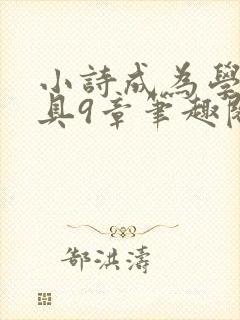 小詩成為學
具9章筆趣閱
郜洪濤